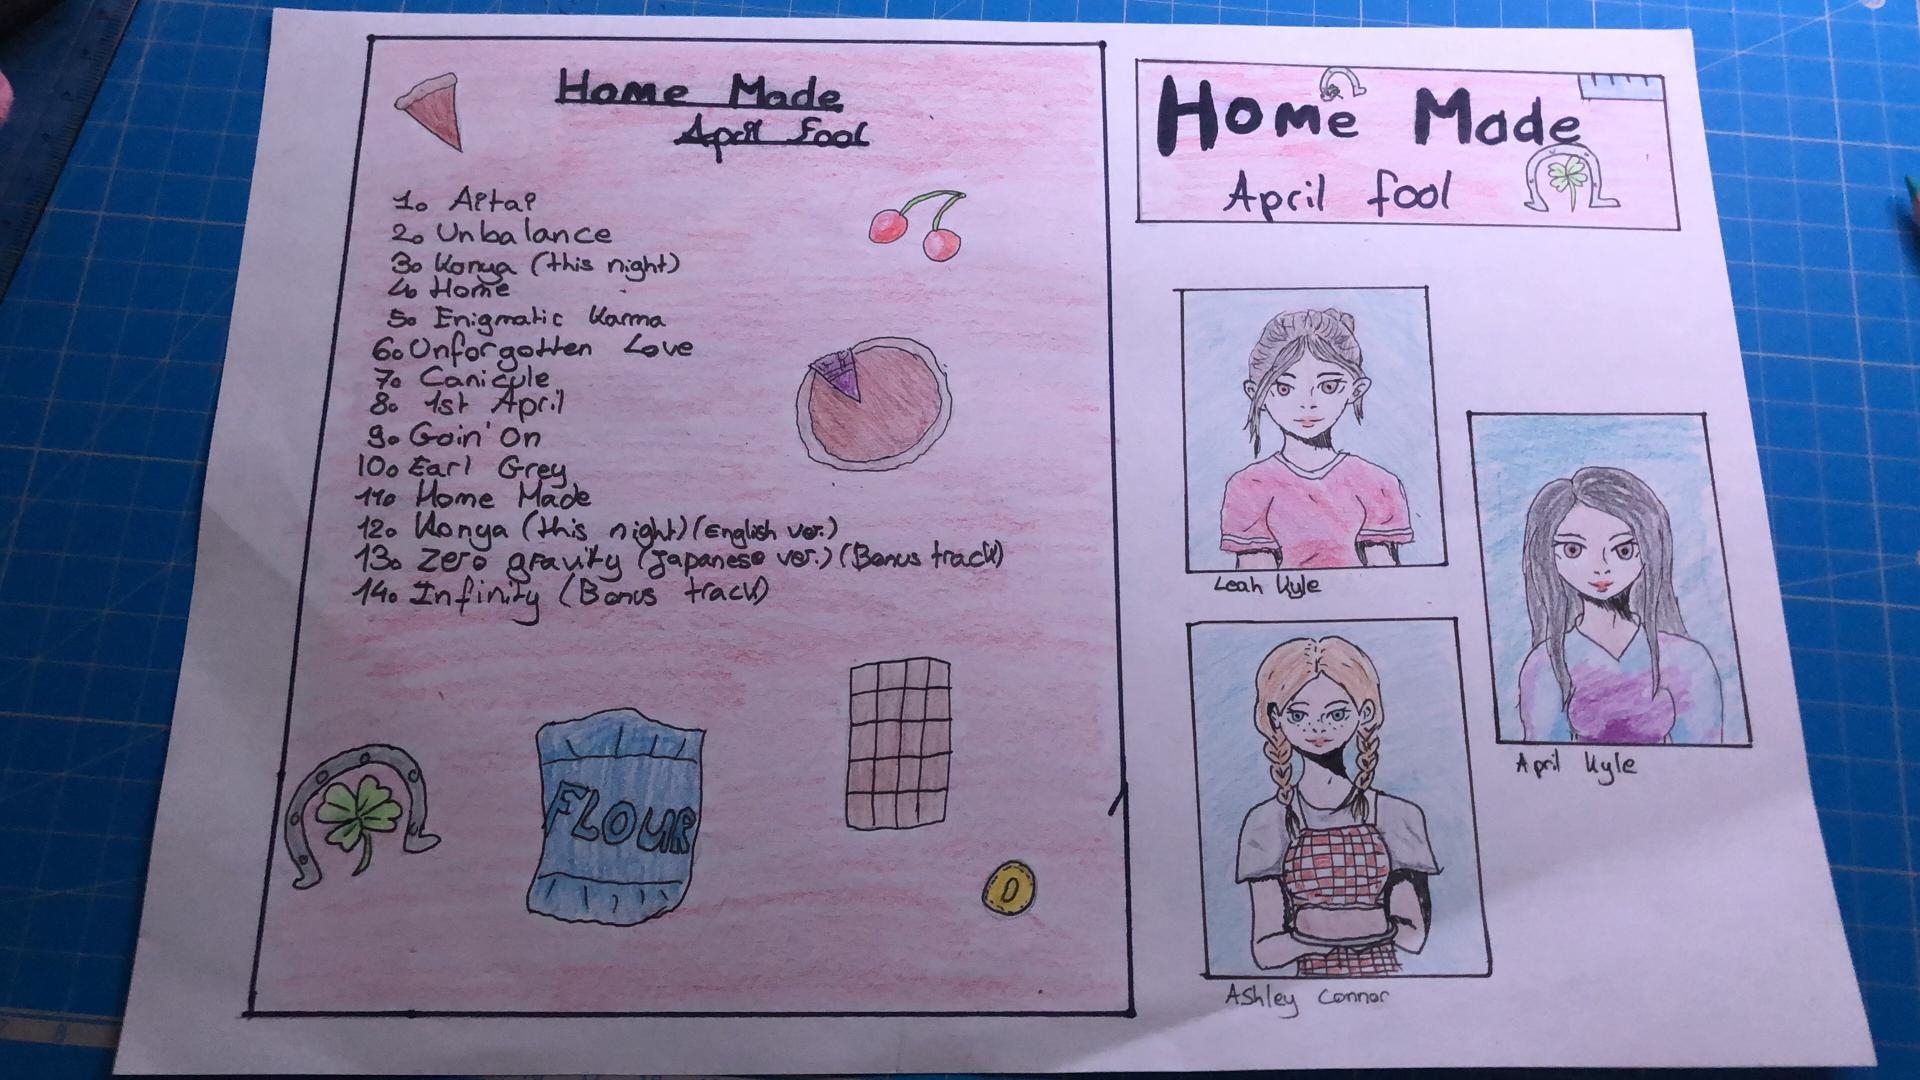 Home Made
April fool
1. Aitai
2. Unbalance
3. Konya (this night)
4. Home
5. Enigmatic Karma
6. Unforgotten Love
7. Canicule
8. 1st April
9. Goin' On
10. Earl Grey
11. Home Made
12. Konya (this night) (English ver.)
13. Zero gravity (Japanese ver.) (Bonus track)
14. Infinity (Bonus track)
FLOUR
0
Home Made
April fool
Leah Kyle
April Kyle
Ashley Connor